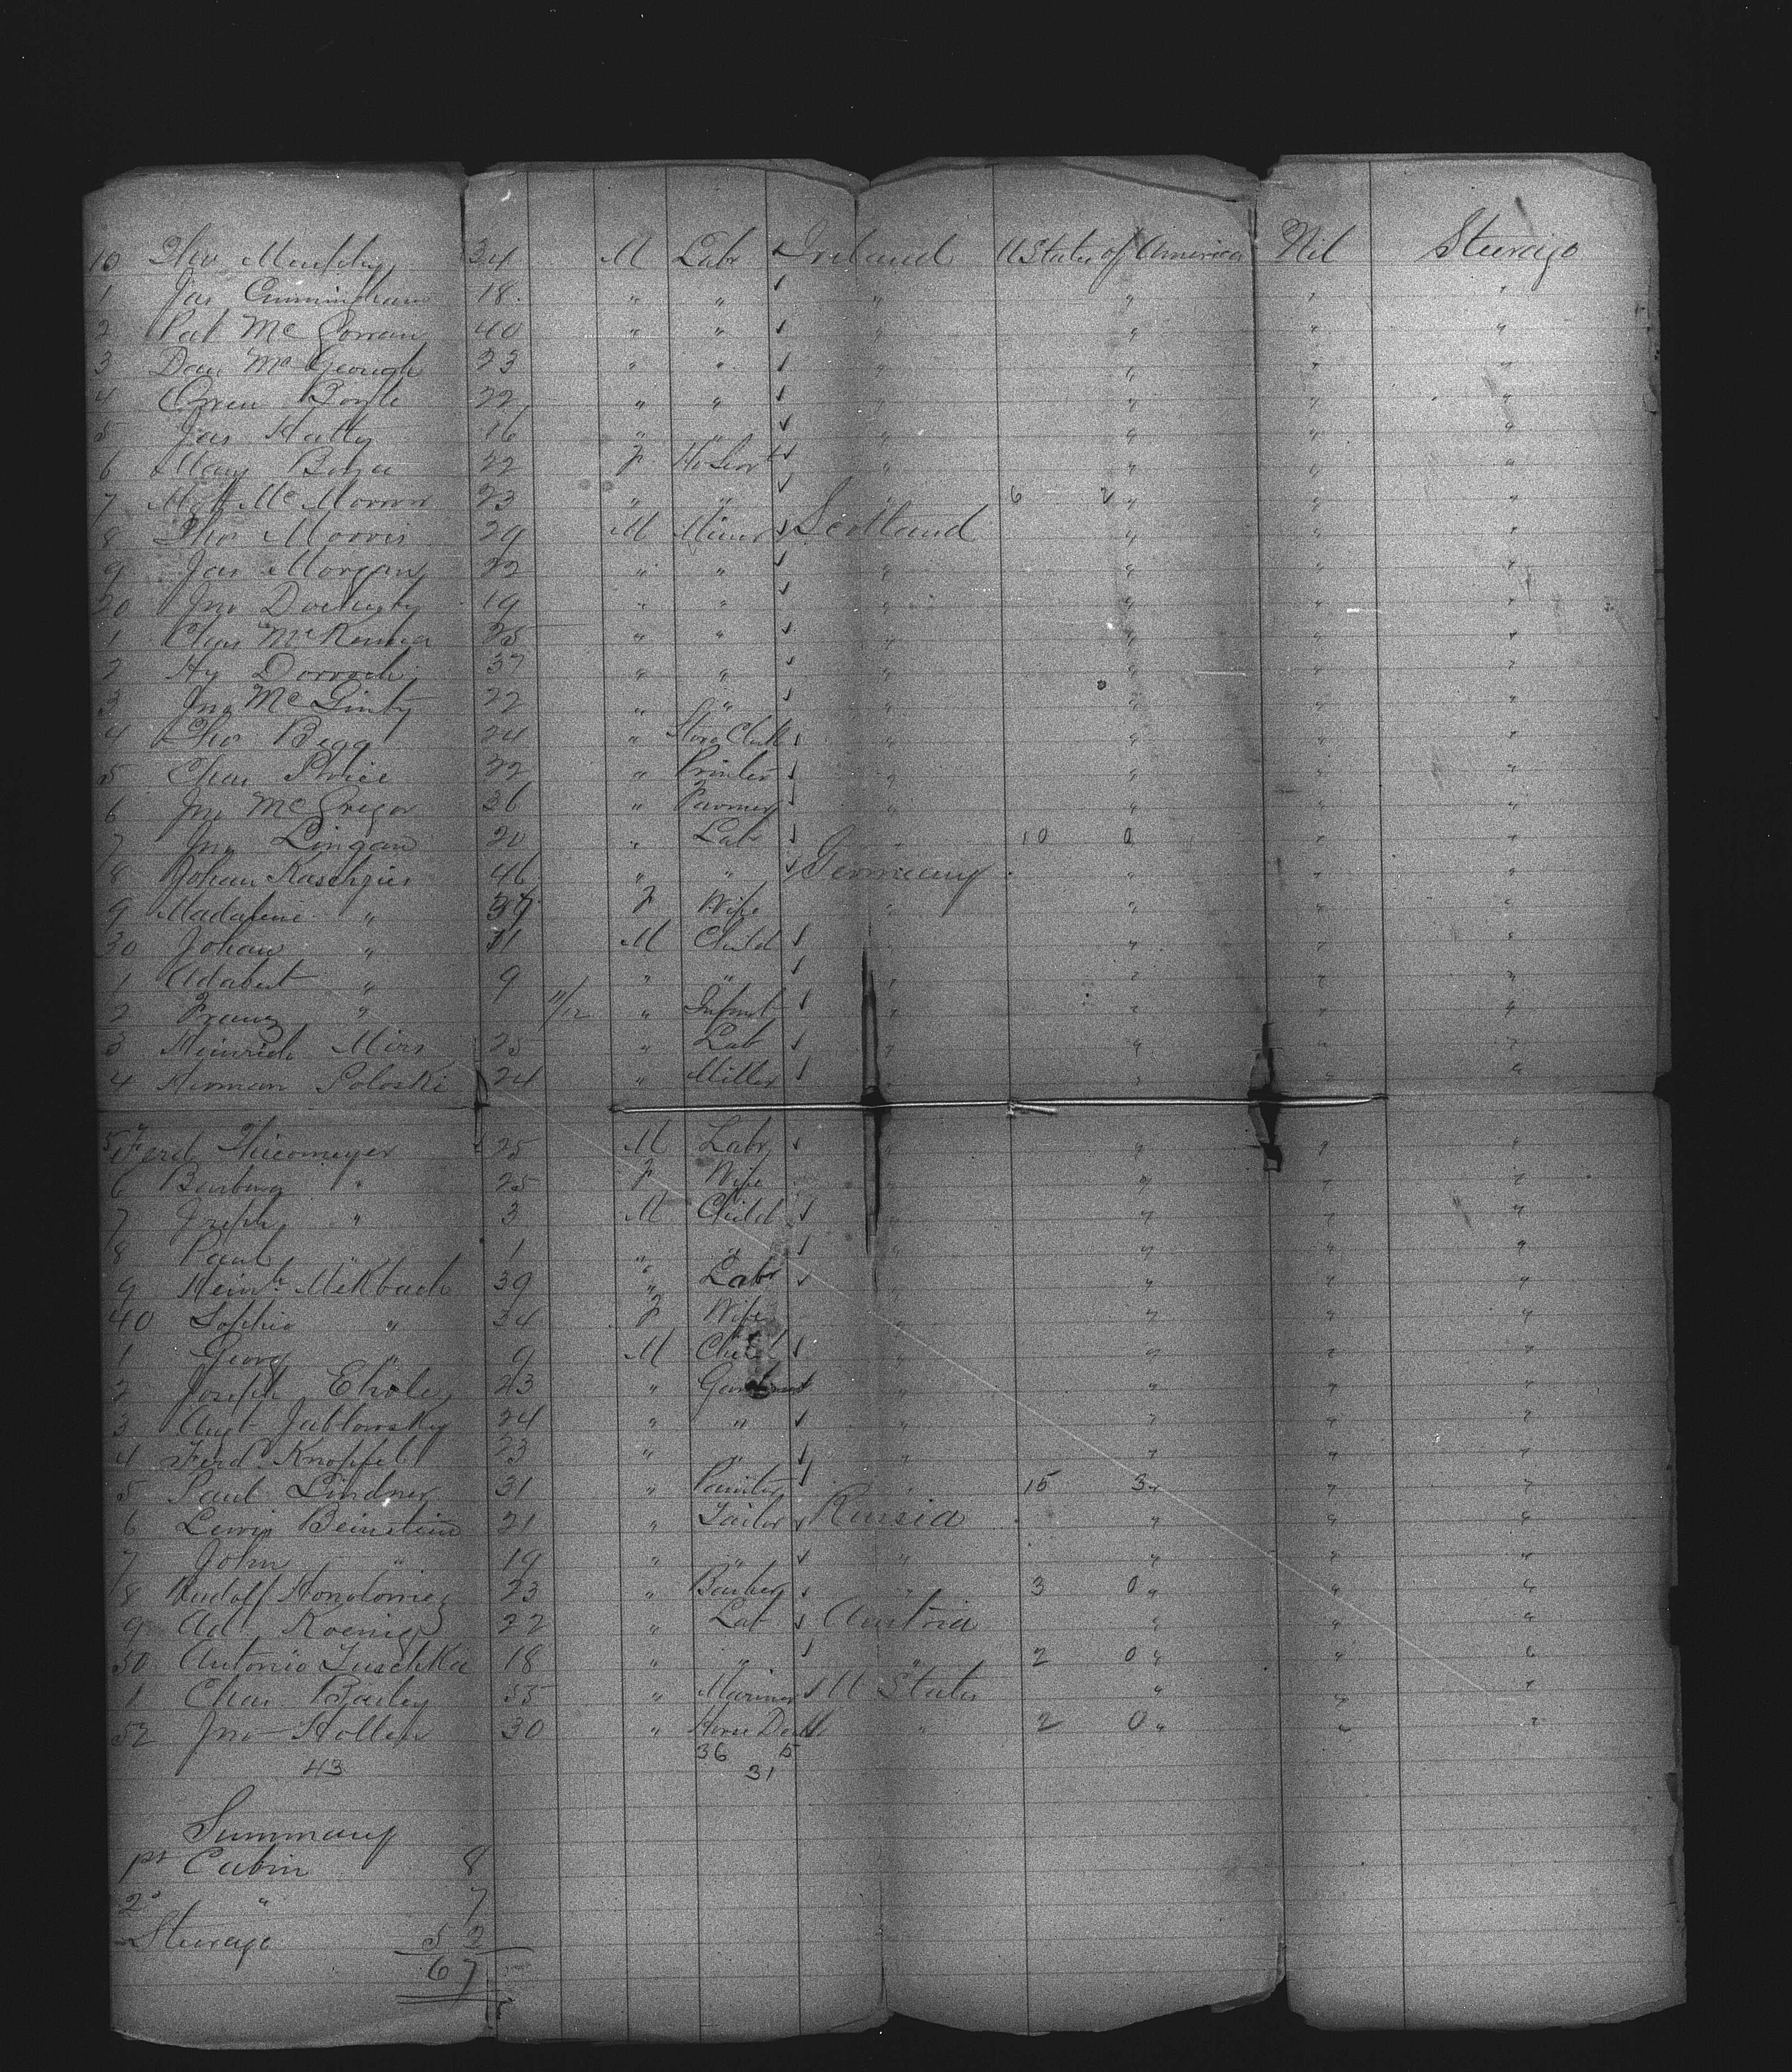 10 Tho Murphy 34 M Labr Ireland U States of America Nil Steerage
1 Jas Cunningham 18 " " " " " "
2 Pat McGorran 40 " " " " " "
3 Dan McGeough 23 " " " " " "
4 Owen Boyle 22 " " " " " "
5 Jas Hatty 16 " " " " " "
6 Mary 22 F " " " "
7 McMorrow 23 " " " 6 2 " " "
8 Thos Morris 29 M Miner Scotland " " "
9 Jas Morgan 22 " " " " " "
20 Jno 19 " " " " " "
1 Chas McKenna 25 " " " " " "
2 Hy Dorroch 37 " " " " " "
3 Jno McGinty 22 " " " " " "
4 Tho Begg 24 " Store Clerk " " " "
5 Chas Price 22 " Printer " " " "
6 Jno McGregor 36 " Farmer " " " "
7 Jno Lingan 20 " Labr " 10 0 " "
8 Johan Kaschgies 46 " " Germany " " "
9 Madaleine " 37 F Wife " " " "
30 Johan " 11 M Child " " " "
1 Adabert " 9 " " " " " "
2 Franz " 11/12 " Infant " " " "
3 Heinrich Mirs 25 " Lab " " " "
4 Herman Poloski 24 " Miller " " " "
5 Ferd Thieomeyer 25 M Labr " " " "
6 Barbara " 25 F Wife " " " "
7 Joseph " 3 M Child " " " "
8 Paul " 1 " " " " " "
9 Heinh Mekbach 39 " Labr " " " "
40 Sophie " 34 F Wife " " " "
1 Georg " 9 M Child " " " "
2 Joseph Ehole 23 " Gardener " " " "
3 Augt Jablowsky 24 " " " " " "
4 Ferd Knopfel 23 " " " " " "
5 Paul Lindner 31 " Painter " 15 3 " " "
6 Lewis Beinstein 21 " Tailor Russia " " "
7 John " 19 " " " " " "
8 Rudolf 23 " Barber " 3 0 " " "
9 Ad Koenig 22 " Lab Austria " " "
50 Antonio Tuschka 18 " " " 2 0 " " "
1 Chas Bailey 35 " Mariner U States " " "
52 Jno Hollen 30 " Horse Dealr " 2 0 " " "
43 36 5
31
Summary
1st Cabin 8
2d " 7
Steerage 52
67